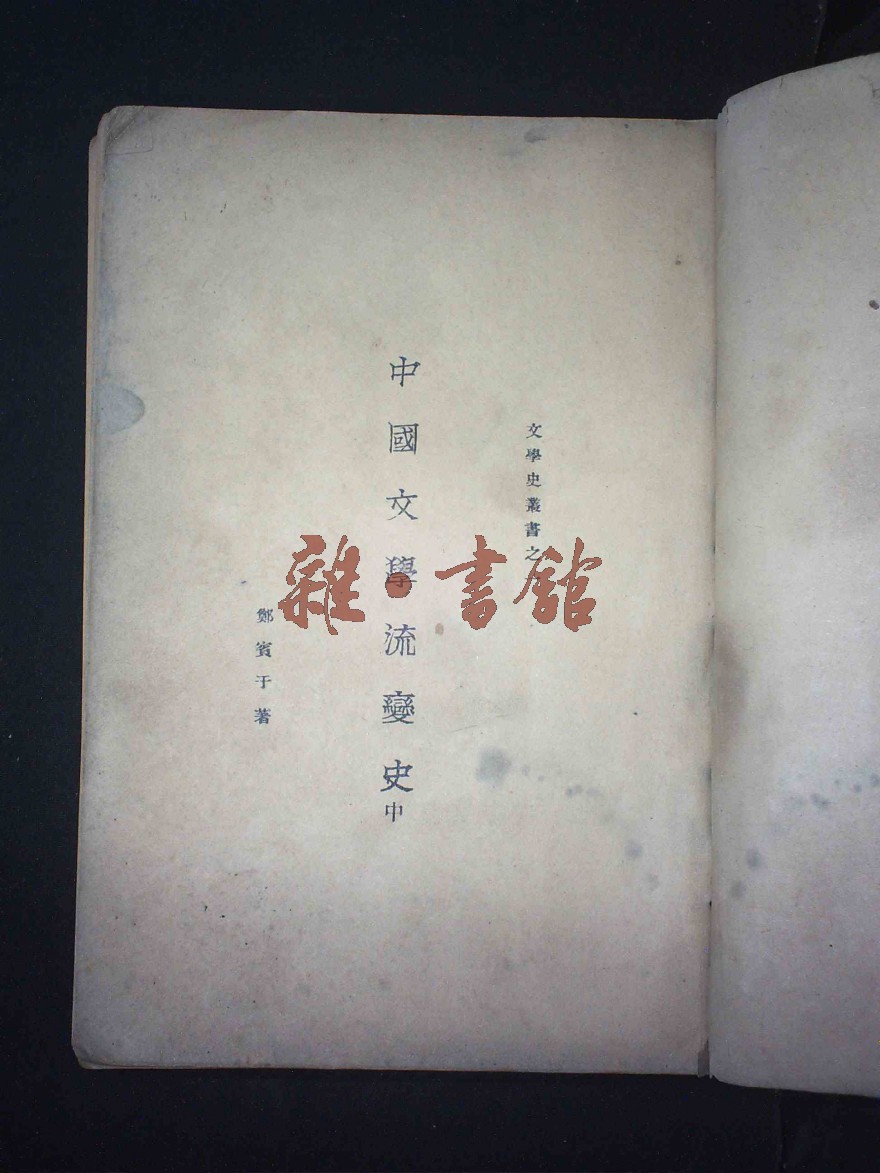 文學史叢書之
中國文學流變史 中
鄭賓于著
雜·書館